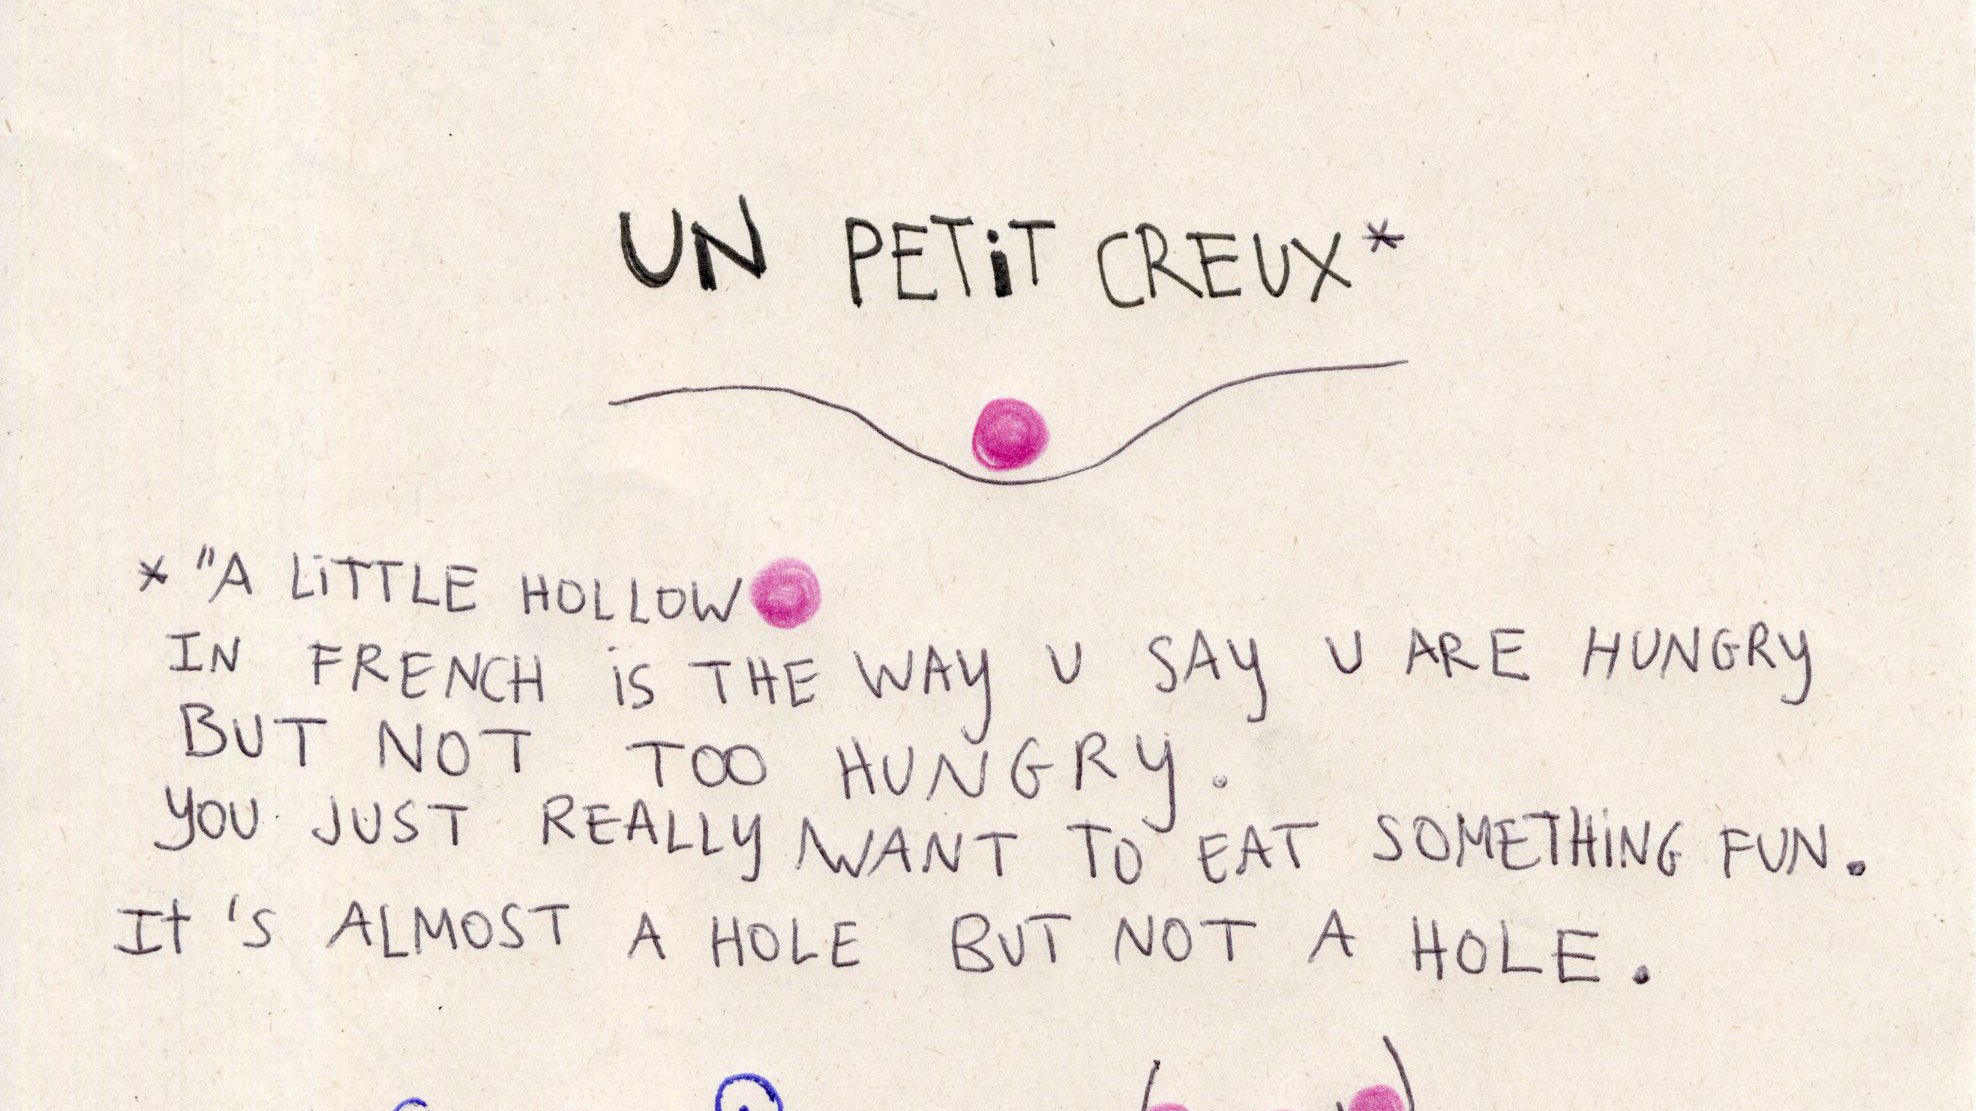 UN PETIT CREUX*
* "A LITTLE HOLLOW
IN FRENCH IS THE WAY U SAY U ARE HUNGRY
BUT NOT TOO HUNGRY.
YOU JUST REALLY WANT TO EAT SOMETHING FUN.
IT'S ALMOST A HOLE BUT NOT A HOLE.